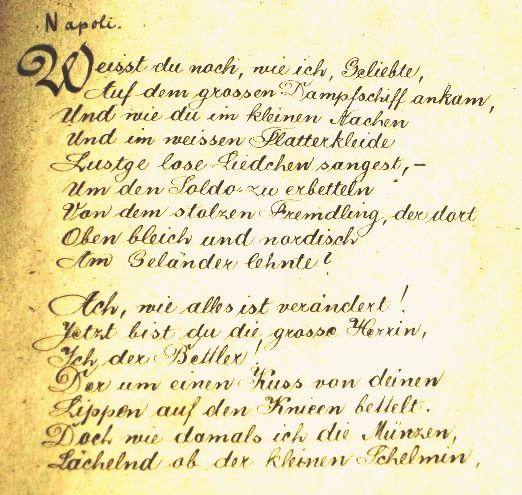 Napoli.
Weisst du noch, wie ich, Geliebte,
Auf dem grossen Dampfschiff ankam,
Und wie du im kleinen Nachen
Und im weissen Flatterkleide
Lustge lose Liedchen sangest, –
Um den Soldo zu erbetteln
Von dem stolzen Fremdling, der dort
Oben bleich und nordisch
Am Geländer lehnte?
Ach, wie alles ist verändert!
Jetzt bist du die grosse Herrin,
Ich der Bettler,
Der um einen Kuss von deinen
Lippen auf den Knieen bettelt.
Doch wie damals ich die Münzen,
Lächelnd ob der kleinen Schelmin,